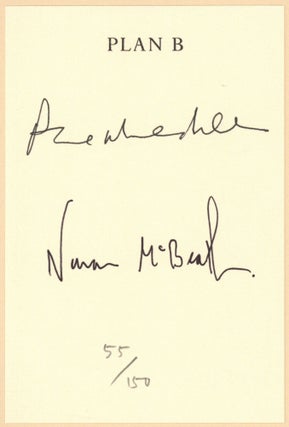 PLAN B
Norman McBeath
55/150